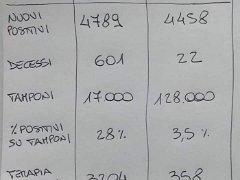 NUOVI POSITIVI 4789 4458
DECESSI 601 22
TAMPONI 17.000 128.000
% POSITIVI SU TAMPONI 28% 3,5%
TERAPIA 3204 358